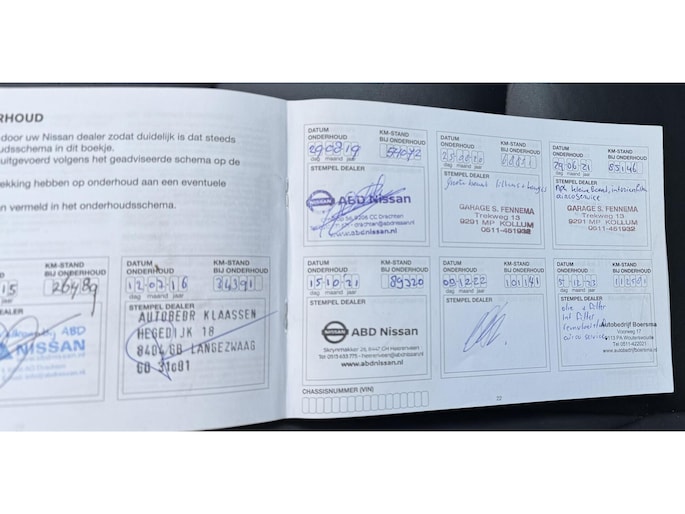 RHOUD
door uw Nissan dealer zodat duidelijk is dat steeds
udsschema in dit boekje.
uitgevoerd volgens het geadviseerde schema op de
ekking hebben op onderhoud aan een eventuele
n vermeld in het onderhoudsschema.
15
jaar
KM-STAND
BIJ ONDERHOUD
26489
EALER
ABD
NISSAN
DATUM
ONDERHOUD
12 07 16
dag maand jaar
KM-STAND
BIJ ONDERHOUD
34391
STEMPEL DEALER
AUTOBEDR KLAASSEN
HEGEDIJK 18
8404 GB LANGEZWAAG
DATUM
ONDERHOUD
29 08 19
dag maand jaar
KM-STAND
BIJ ONDERHOUD
59072
STEMPEL DEALER
NISSAN ABD Nissan
9206 CC Drachten
drachten@abdnissan.nl
www.abdnissan.nl
DATUM
ONDERHOUD
dag maand jaar
KM-STAND
BIJ ONDERHOUD
STEMPEL DEALER
Grote beurt
GARAGE S. FENNEMA
Trekweg 13
9291 MP KOLLUM
0511-451932
DATUM
ONDERHOUD
29 06 21
dag maand jaar
KM-STAND
BIJ ONDERHOUD
85146
STEMPEL DEALER
kleine Beurt, interieurfilter
aircoservice
GARAGE S. FENNEMA
Trekweg 13
9291 MP KOLLUM
0511-451932
DATUM
ONDERHOUD
15 10 21
dag maand jaar
KM-STAND
BIJ ONDERHOUD
89320
STEMPEL DEALER
NISSAN ABD Nissan
Skrynmakker 26, 8447 GH Heerenveen
heerenveen@abdnissan.nl
www.abdnissan.nl
DATUM
ONDERHOUD
09 12 22
dag maand jaar
KM-STAND
BIJ ONDERHOUD
101141
STEMPEL DEALER
DATUM
ONDERHOUD
12 23
dag maand jaar
KM-STAND
BIJ ONDERHOUD
112501
STEMPEL DEALER
olie + filter
int filter
Autobedrijf Boersma
Voorweg 17
9113 PA Wouterswoude
Tel 0511-422021
www.autobedrijfboersma.nl
CHASSISNUMMER (VIN)
22